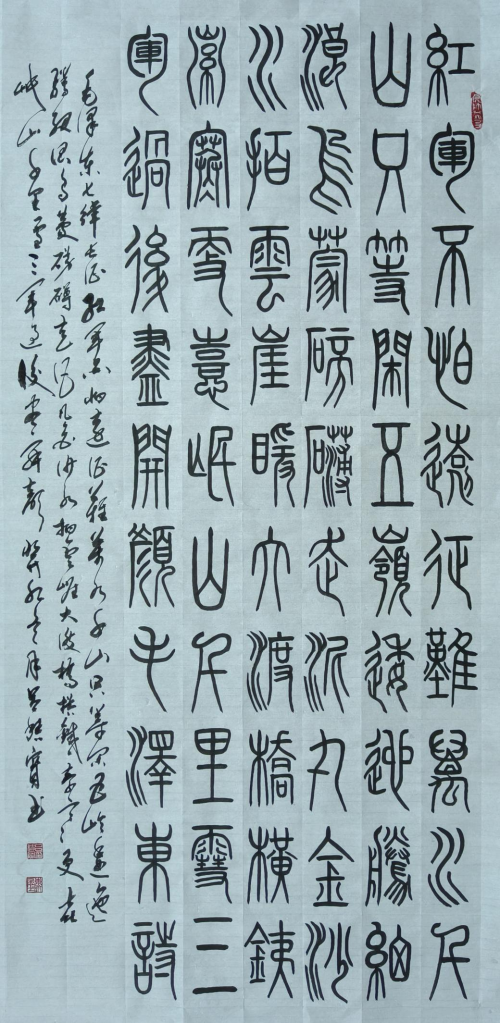 紅軍不怕遠征難萬水千
山只等閑五嶺逶迤騰細
浪烏蒙磅礴走泥丸金沙
水拍雲崖暖大渡橋橫銕
索寒更喜岷山千里雪三
軍過後盡開顏毛澤東詩
毛澤東七律長征紅軍不怕遠征難萬水千山只等閑五嶺逶迤
騰細浪烏蒙磅礴走泥丸金沙水拍雲崖大渡橋橫鐵索寒更喜
岷山千里雪三軍過後盡開顏